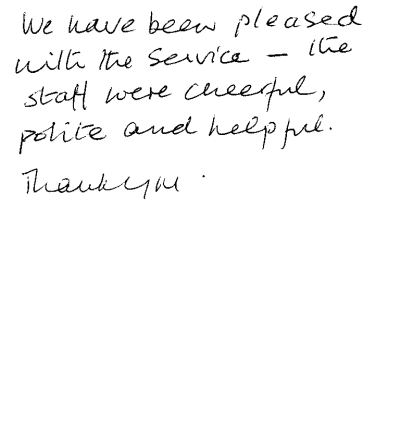 We have been pleased
with the service – the
staff were cheerful,
polite and helpful.
Thankyou.